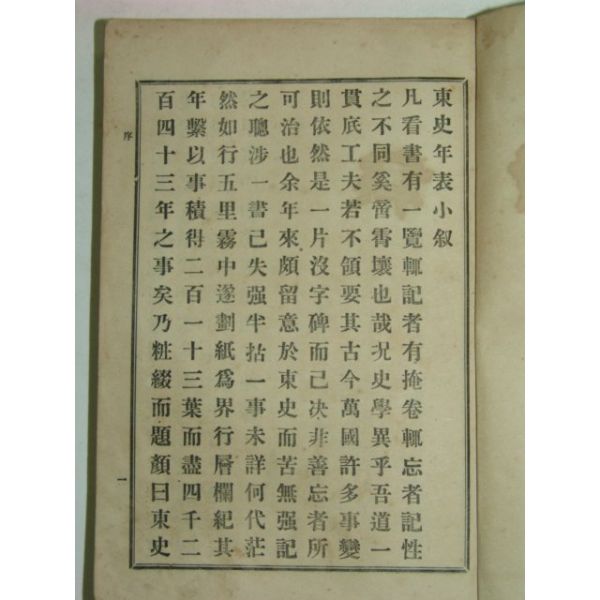 東史年表小叙
凡看書有一覽輒記者有掩卷輒忘者記性
之不同奚啻霄壤也哉况史學異乎吾道一
貫底工夫若不領要其古今萬國許多事變
則依然是一片沒字碑而已决非善忘者所
可治也余年來頗留意於東史而苦無强記
之聰涉一書已失强半拈一事未詳何代茫
然如行五里霧中遂劃紙爲界行層欄紀其
年繫以事積得二百一十三葉而盡四千二
百四十三年之事矣乃粧綴而題顔曰東史
序
一